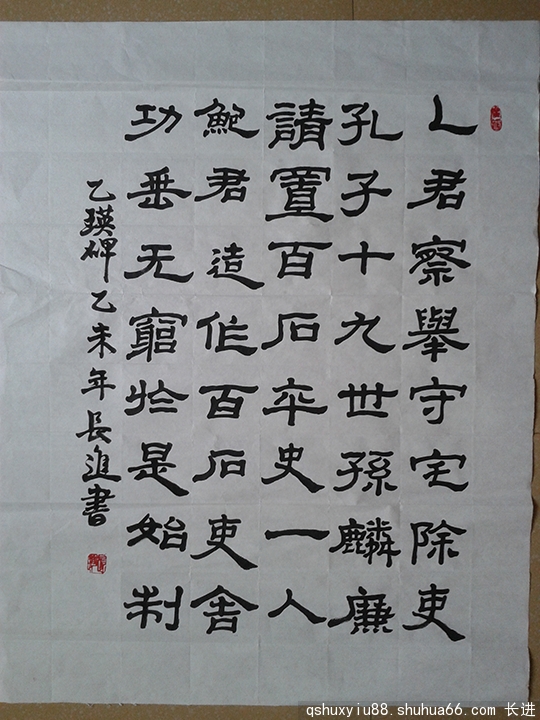 乙君察舉守宅除吏
孔子十九世孫麟廉
請置百石卒史一人
鮑君造作百石吏舍
功垂无窮於是始制
乙瑛碑乙未年長進書
qshuxyiu88.shuhua66.com 长进